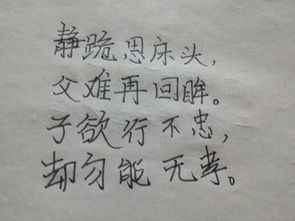 静跪思床头，
父难再回眸。
子欲行不忠，
却勿能无孝。